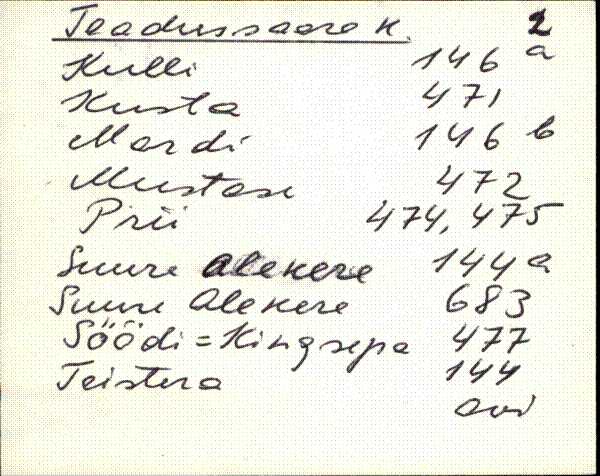 Teadussaare k. 2
Kulli 146 a
Kusta 471
Mardi 146 b
Mustase 472
Prii 474, 475
Suure Alekere 144 a
Suure Alekere 683
Söödi = Kingsepa 477
Teistera 144